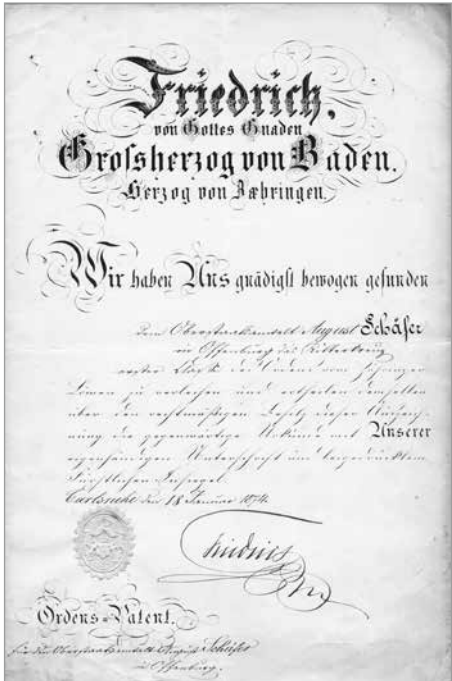 Friedrich,
von Gottes Gnaden
Grossherzog von Baden,
Herzog von Zæhringen,
Wir haben Uns gnädigst bewogen gefunden
dem Oberstaatsanwalt August Schäfer
in Offenburg das Ritterkreuz
erster Klasse des Ordens vom Zähringer
Löwen zu verleihen und ertheilen demselben
über den rechtmäßigen Besitz dieser Auszeich-
nung die gegenwärtige Urkunde mit Unserer
eigenhändigen Unterschrift und beigedrucktem
Fürstlichen Insiegel.
Carlsruhe den 18 Januar 1874.
Friedrich
Ordens=Patent.
für den Oberstaatsanwalt August Schäfer
in Offenburg.